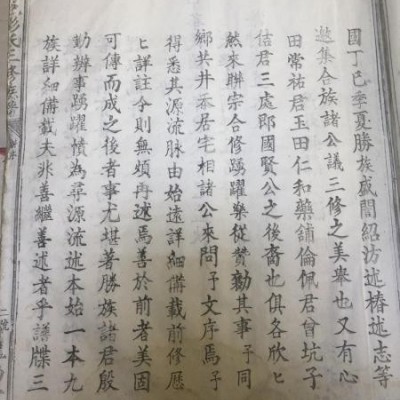 國丁巳季夏勝族盛閭紹汸述椿述志等
邀集合族諸公議三修之美舉也又有心
田常祐君玉田仁和藥舖倫佩君曾坑子
信君三處郎國賢公之後裔也俱各欣匕
然來聯宗合修踴躍樂從贊勷其事予同
鄉共井忝居宅相諸公來問予文序焉予
得悉其源流脉由始遠詳細備載前修歷
匕詳註今則無煩再述焉善於前者美固
可傳而成之後者事尤堪著勝族諸君殷
勤辦事踴躍憤為尋源流述本始一本九
族詳細備載夫非善繼善述者乎譜牒三
三修族譜